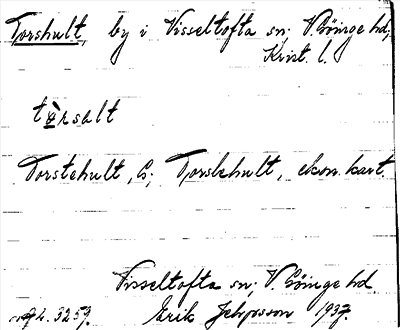 Torshult, by i Visseltofta sn; V. Göinge hd,
Krist. l.
Torstehult, G; Torsbehult, ekon. kart.
Visseltofta sn; V. Göinge hd.
Erik Jeppsson 1937.